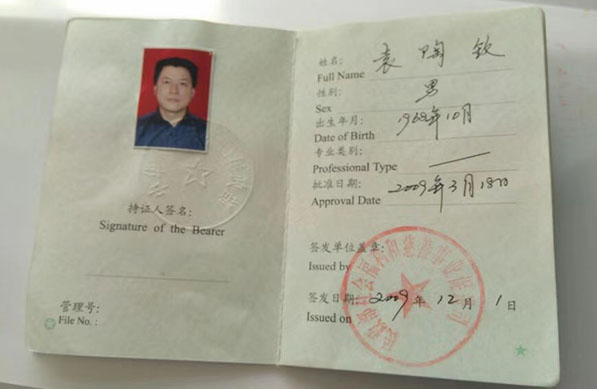 持证人签名:
Signature of the Bearer
管理号:
File No. :
姓名: 袁陶钦
Full Name
性别: 男
Sex
出生年月: 1968年10月
Date of Birth
专业类别:
Professional Type
批准日期: 2009年3月18日
Approval Date
签发单位盖章:
Issued by
签发日期: 2009年12月1日
Issued on